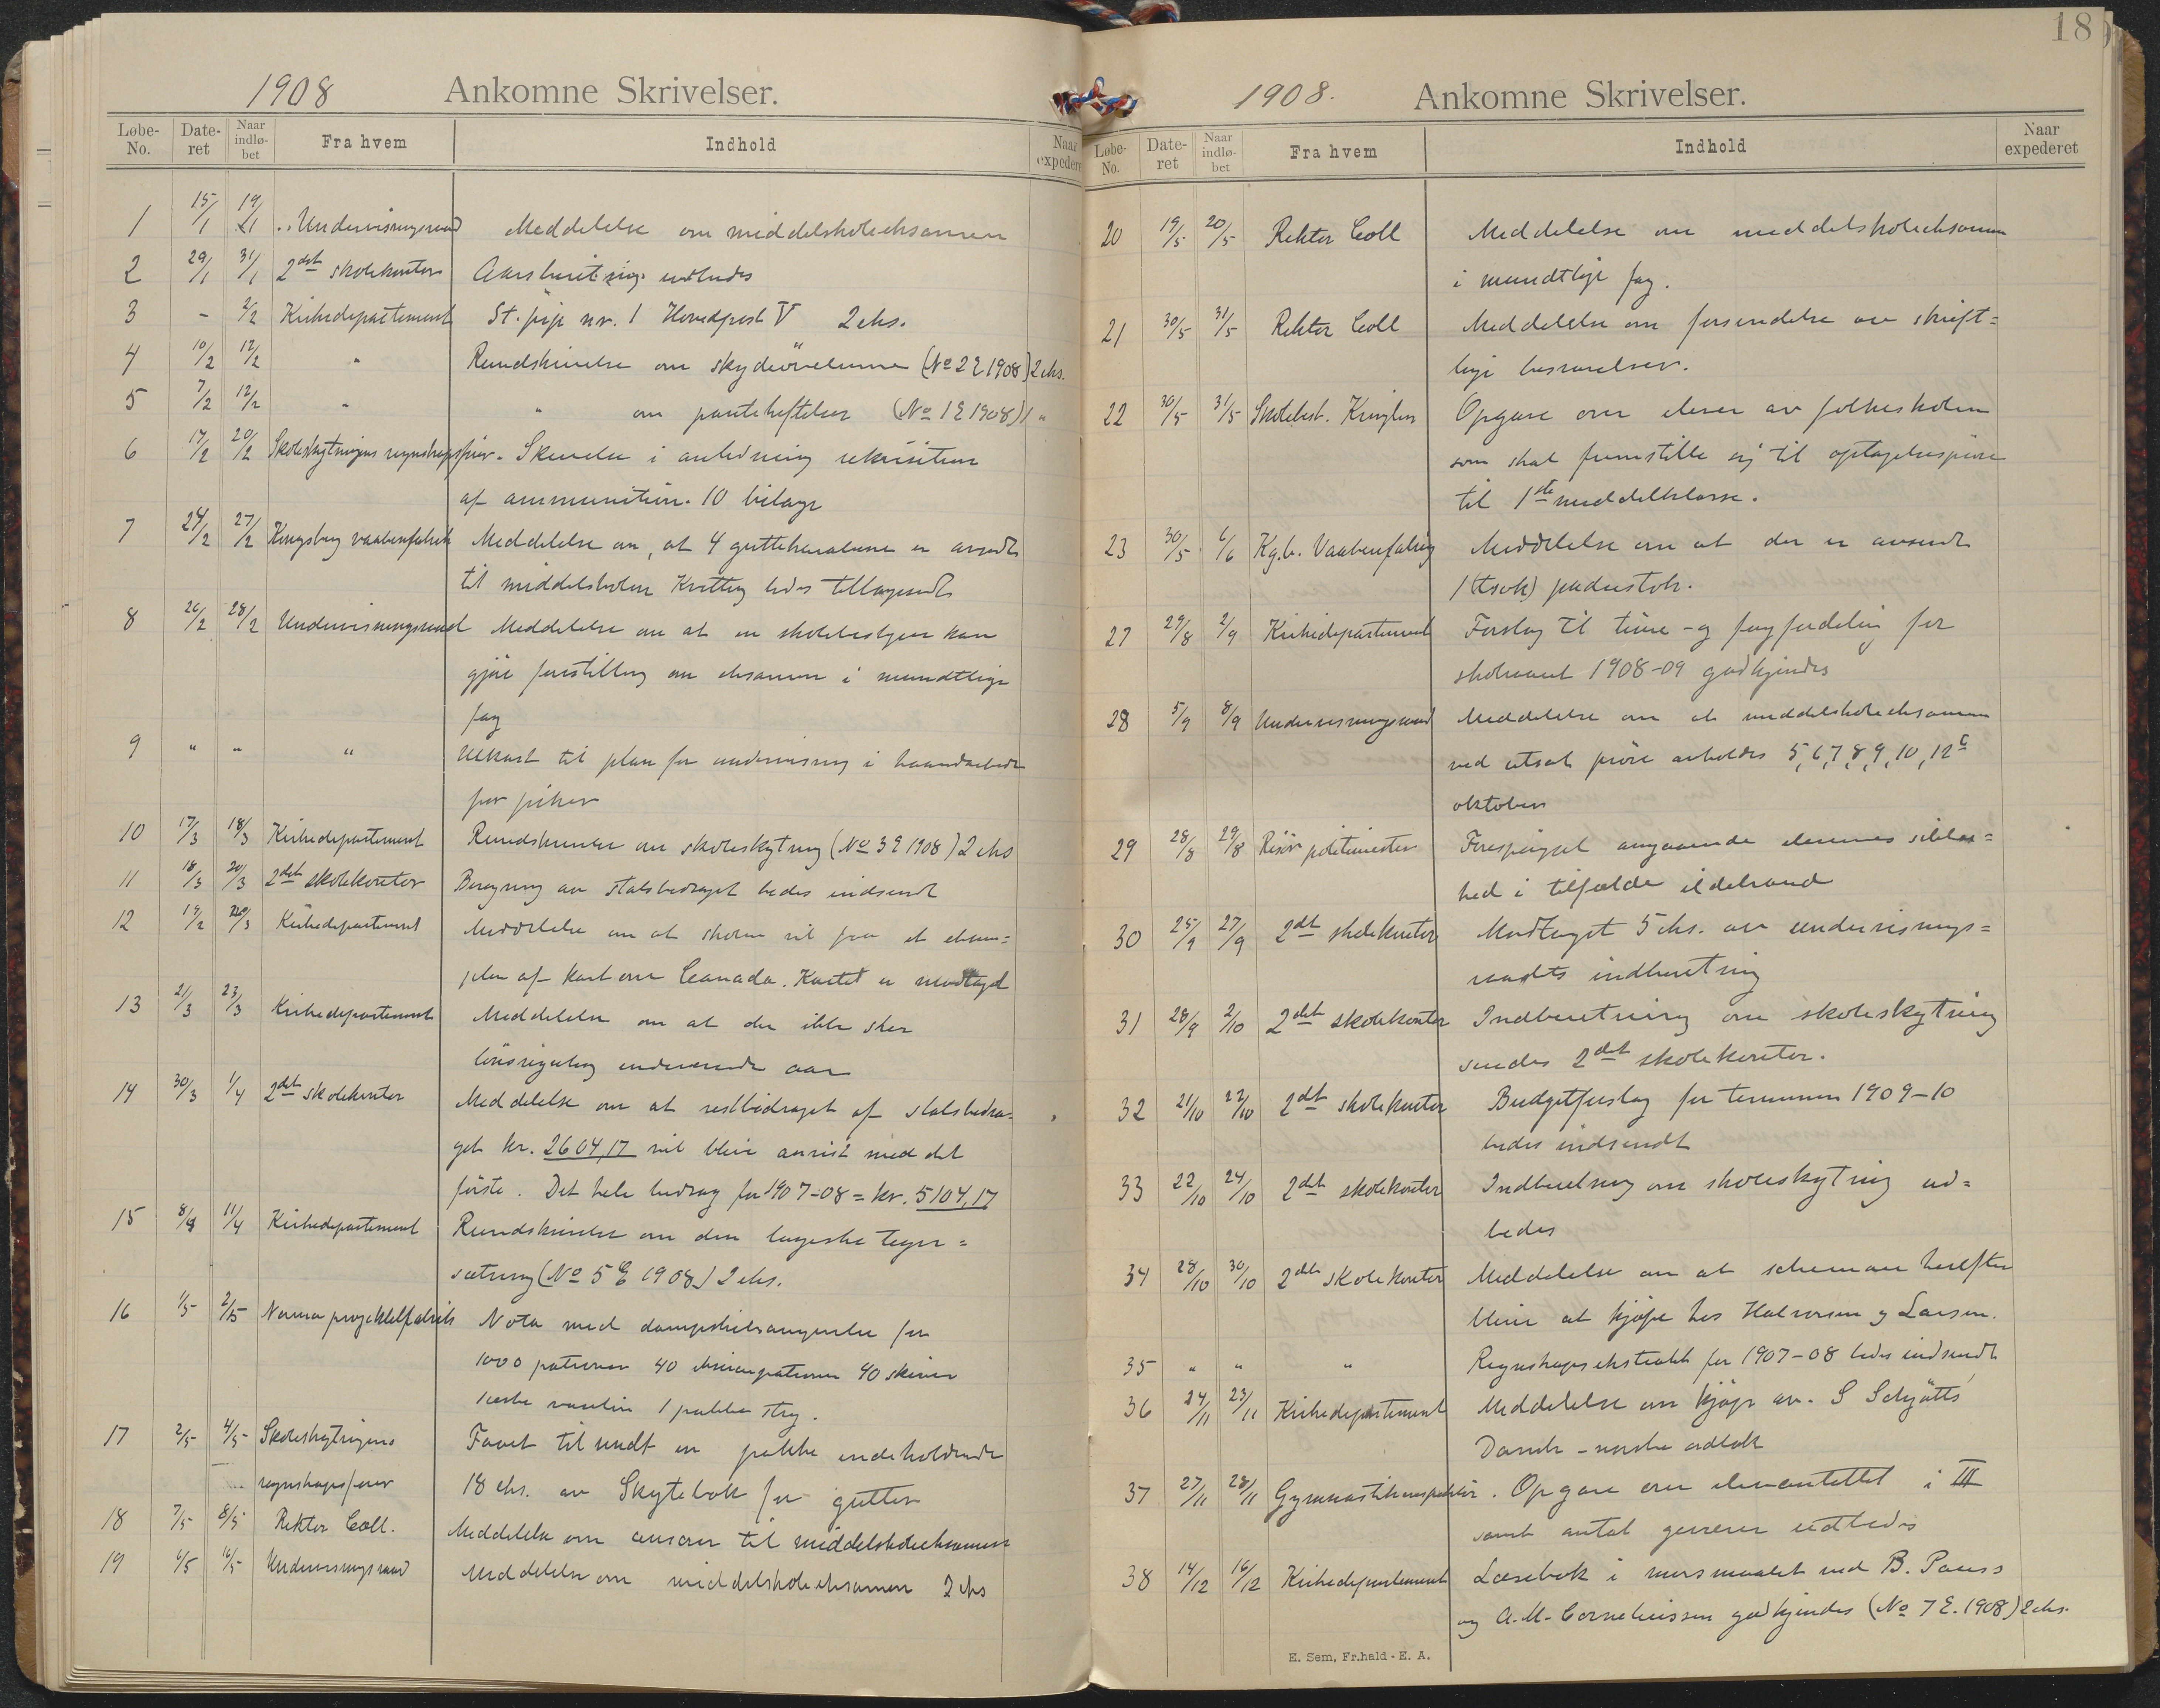 18
1908 Ankomne Skrivelser.
Løbe-No. Date-ret Naar indlø-bet Fra hvem Indhold Naar expederet
1 15/1 19/1 Undervisningsraad Meddelelse om middelskoleeksamen
2 29/1 31/1 2det skolekontor Aarsberetning udbedes
3 - 2/2 Kirkedepartement St. prp nr. 1 Hovedpost V 2 eks.
4 10/2 12/2 " Rundskrivelse om skydeövelserne (No 2 E 1908) 2 eks.
5 7/2 12/2 " " om panteheftelser (No 1 E 1908) 1 "
6 17/2 20/2 Skoleskytningens regnskapsfører. Skrivelse i anledning rekvisition
af ammunition. 10 bilage
7 24/2 27/2 Kongsberg vaabenfabrik Meddelelse om, at 4 guttekarabiner er avsendt
til middelskolen Kvittering bedes tilbagesendt
8 26/2 28/2 Undervisningsraad Meddelelse om at en skolebestyrer kan
gjöre forestilling om eksamen i mundtlige
fag
9 " " " Utkast til plan for undervisning i haandarbeide
for piker
10 17/3 18/3 Kirkedepartement Rundskrivelse om skoleskytning (No 3 E 1908) 2 eks
11 18/3 20/3 2det skolekontor Beregning av statsbidraget bedes indsendt
12 19/2 20/3 Kirkedepartement Meddelelse om at skolen vil faa et eksem=
plar af kart over Canada. Kartet er modtaget
13 21/3 23/3 Kirkedepartement Meddelelse om at der ikke sker
lönsregulering indeværende aar
14 30/3 1/4 2det skolekontor Meddelelse om at restbidraget af statsbidra-
get kr. 2604,17 vil blive anvist med det
förste. Det hele bidrag for 1907-08 = kr. 5104,17
15 8/4 11/4 Kirkedepartement Rundskrivelse om den logiske tegn=
sætning (No 5 E 1908) 2 eks.
16 1/5 2/5 Norma projektilfabrik Nota med dampskibsangivelse for
1000 patroner 40 eksercerpatroner 40 skiver
1 æske vaselin 1 pakke stry.
17 2/5 4/5 Skoleskytningens Faaet tilsendt en pakke indeholdende
regnskapsfører 18 eks. av Skytebok for gutter
18 7/5 8/5 Rektor Coll. Meddelelse om censorer til middelskoleeksamen
19 6/5 16/5 Undervisningsraad Meddelelse om middelskoleeksamen 2 eks
1908. Ankomne Skrivelser.
Løbe-No. Date-ret Naar indlø-bet Fra hvem Indhold Naar expederet
20 19/5 20/5 Rektor Coll Meddelelse om middelskoleeksamen
i mundtlige fag.
21 30/5 31/5 Rektor Coll Meddelelse om forsendelse av skrift=
lige besvarelser.
22 30/5 31/5 Skolebest. Opgave over elever av folkeskolen
som skal fremstille sig til optagelsesprøve
til 1ste middelklasse.
23 30/5 6/6 Kg.b. Vaabenfabrig Meddelelse om at der er avsendt
1 (tsok) pudsestok.
27 29/8 2/9 Kirkedepartement Forslag til time- og fagfordeling for
skoleaaret 1908-09 godkjendes
28 5/9 8/9 Undervisningsraad Meddelelse om at middelskoleeksamen
ved utsat prøve avholdes 5,6,7,8,9,10,12
oktober
29 28/8 29/8 Risör politimester Forespörgsel angaaende elevernes sikker=
hed i tilfælde ildebrand
30 25/9 27/9 2det skolekontor Modtaget 5 eks. av undervisnings=
raadets indberetning
31 28/9 2/10 2det skolekontor Indberetning om skoleskytning
sendes 2det skolekontor.
32 21/10 22/10 2det skolekontor Budgetforslag for terminen 1909-10
bedes indsendt
33 22/10 24/10 2det skolekontor Indberetning om skoleskytning ud=
bedes
34 28/10 30/10 2det skolekontor Meddelelse om at schemaer herefter
bliver at kjøpe hos Halvorsen og Larsen.
35 " " " Regnskapsekstrakt for 1907-08 bedes indsendt
36 24/11 23/11 Kirkedepartement Meddelelse om kjøp av. S Schjötts
Dansk-norske ordbok
37 27/11 28/11 Gymnastikinspektör. Opgave over elevantallet i III
samt antal geværer udbedes
38 14/12 16/12 Kirkedepartement Læsebok i morsmaalet ved B. Pauss
og A.M. Corneliussen godkjendes (No 7 E. 1908) 2 eks.
E. Sem, Fr.hald - E. A.